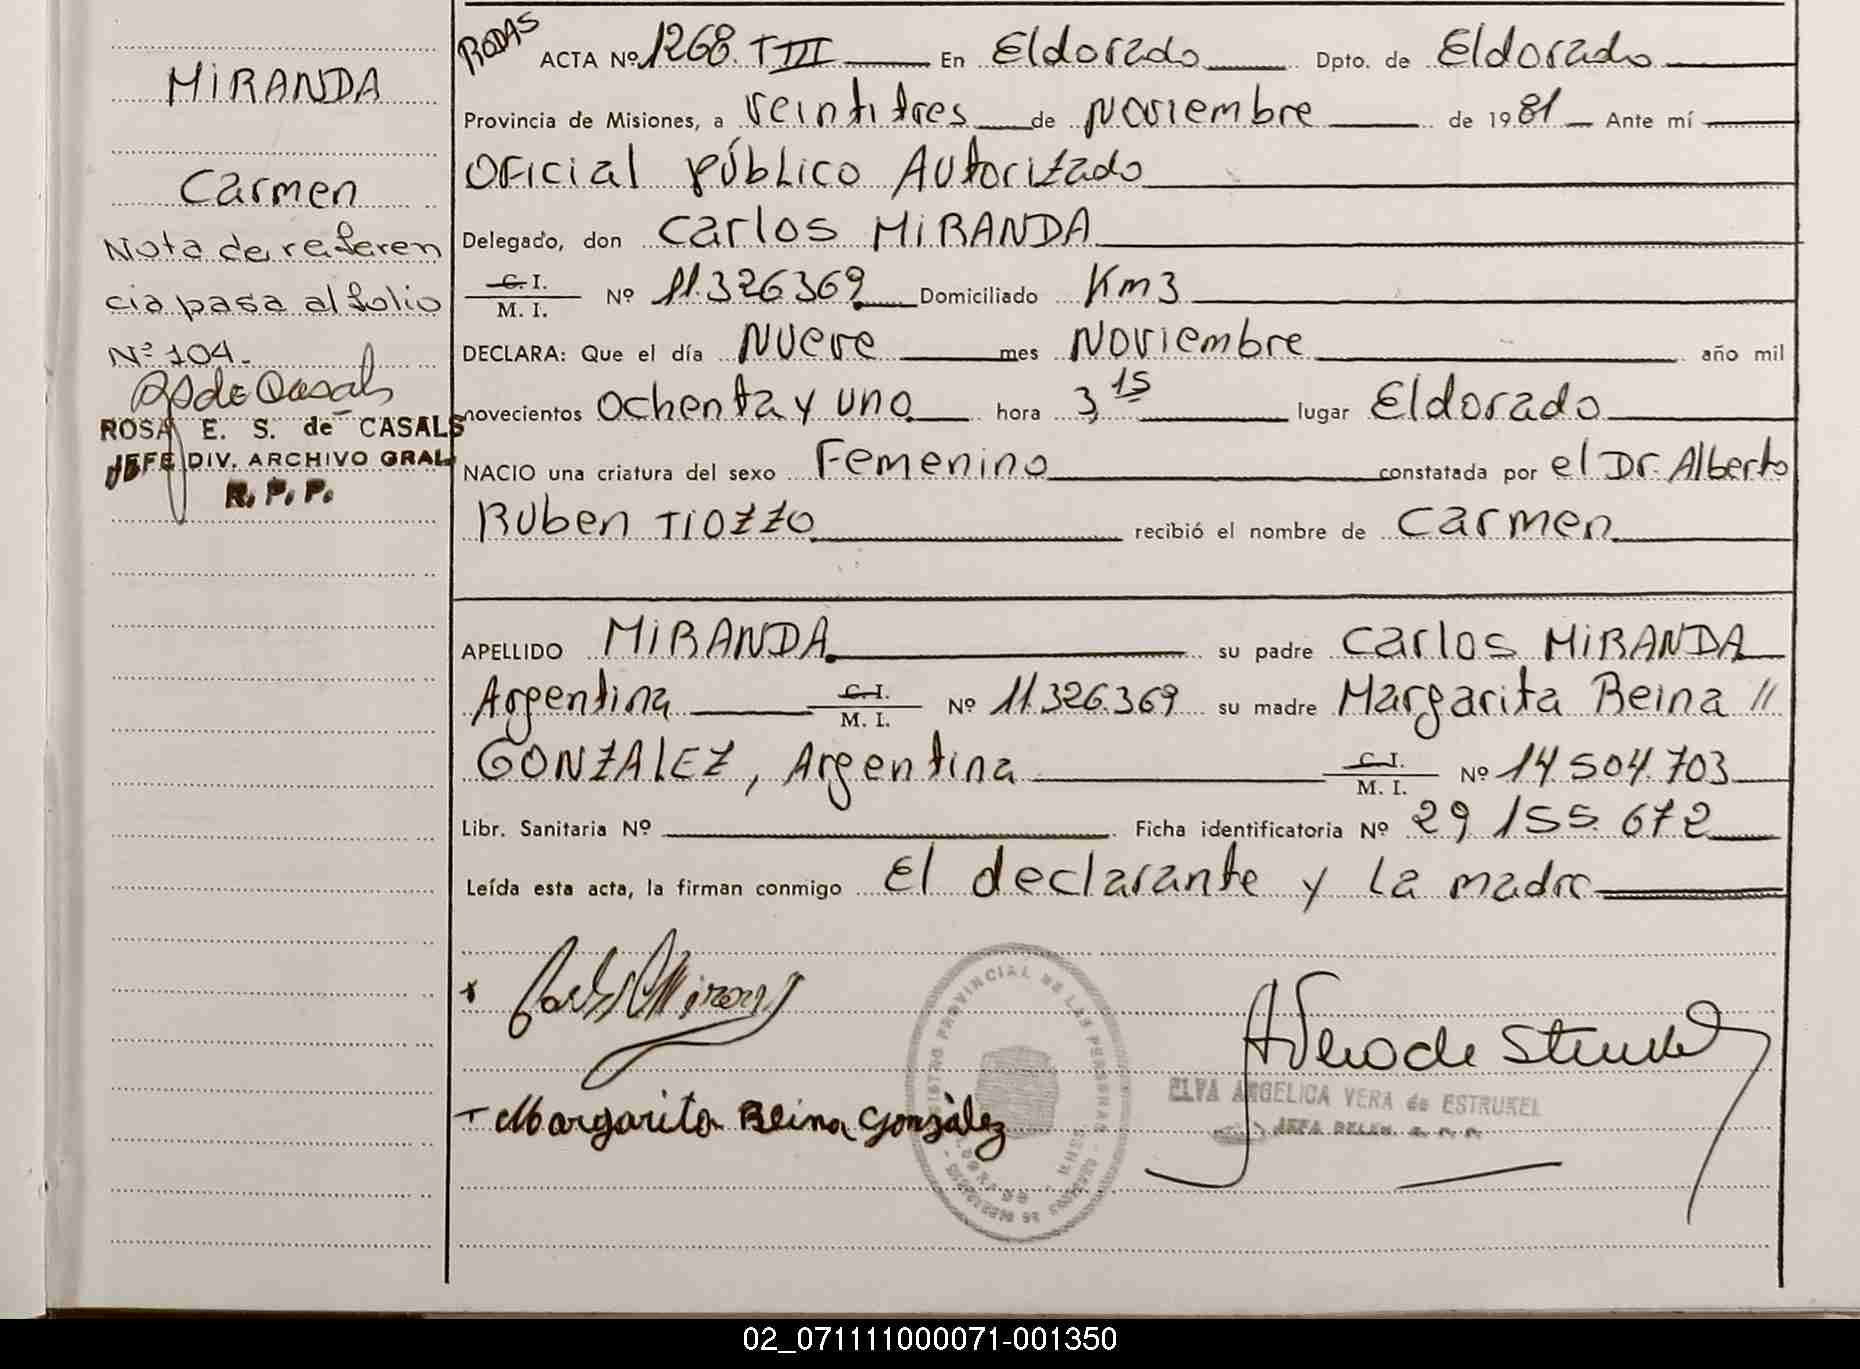 MIRANDA
Carmen
Nota de referen
cia pasa al folio
Nº 104.
ROSA E. S. de CASALS
JEFE DIV. ARCHIVO GRAL
R. P. P.
RODAS
ACTA Nº 1268. T III En Eldorado Dpto. de Eldorado
Provincia de Misiones, a veintitres de noviembre de 1981 Ante mí
Oficial público Autorizado
Delegado, don Carlos MIRANDA
C. I.
M. I. Nº 11.326.369 Domiciliado Km 3
DECLARA: Que el día Nueve mes Noviembre año mil
novecientos ochenta y uno hora 3,15 lugar Eldorado
NACIO una criatura del sexo Femenino constatada por el Dr. Alberto
Ruben TIOZZO recibió el nombre de Carmen
APELLIDO MIRANDA su padre Carlos MIRANDA
Argentina C. I.
M. I. Nº 11.326.369 su madre Margarita Reina //
GONZALEZ, Argentina C. I.
M. I. Nº 14.504.703
Libr. Sanitaria Nº Ficha identificatoria Nº 29.155.672
Leída esta acta, la firman conmigo El declarante y la madre
Margarita Reina González
REGISTRO PROVINCIAL DE LAS PERSONAS
ELVA ANGELICA VERA de ESTRUKEL
02_071111000071-001350